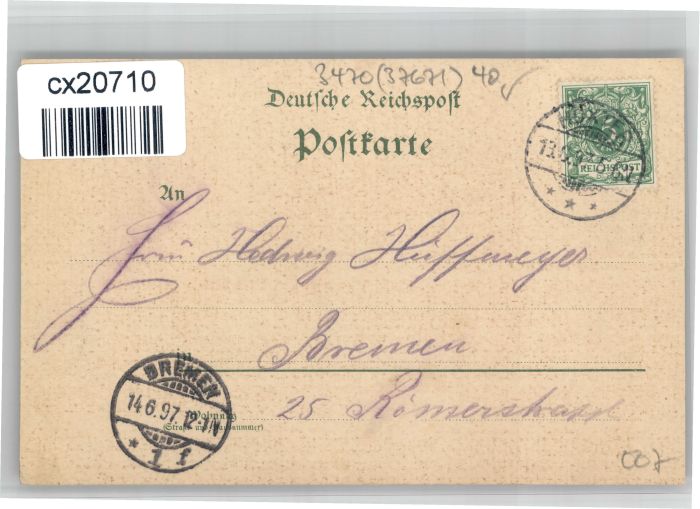 cx20710
3470 (37671) 40
Deutsche Reichspost
Postkarte
An
Frau Hedwig Hüffmeyer
in
Bremen
Wohnung
(Straße und Hausnummer)
25 Römerstrasse
REICHSPOST
BREMEN
14.6.97
* 1 f